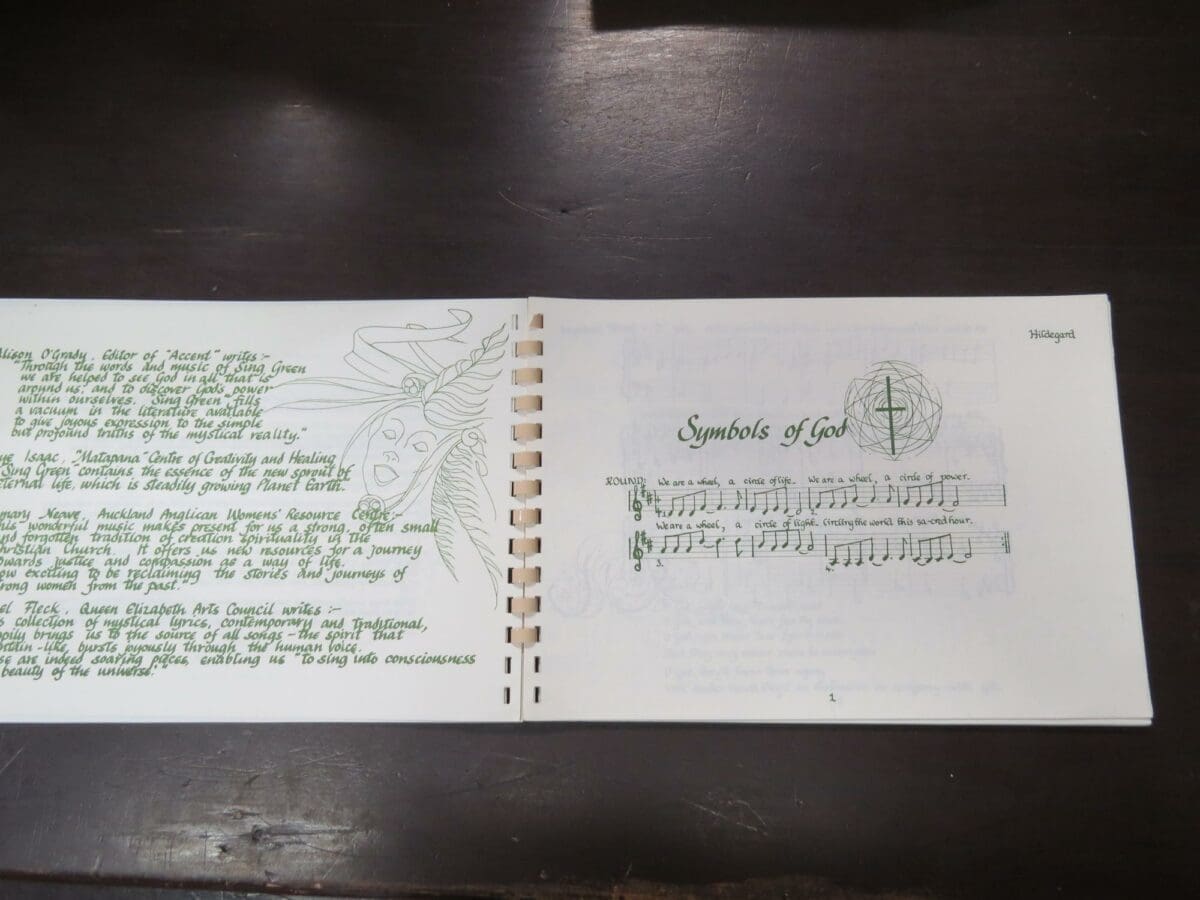 Alison O'Grady, Editor of "Accent" writes:-
"Through the words and music of Sing Green
we are helped to see God in all that is
around us, and to discover Gods power
within ourselves. "Sing Green" fills
a vacuum in the literature available
to give joyous expression to the simple
but profound truths of the mystical reality."
Isaac, "Matapana" Centre of Creativity and Healing
"Sing Green" contains the essence of the new sprout of
eternal life, which is steadily growing Planet Earth."
Neave, Auckland Anglican Womens' Resource Centre:-
wonderful music makes present for us a strong, often small
and forgotten tradition of creation spirituality in the
Christian Church. It offers us new resources for a journey
towards justice and compassion as a way of life.
How exciting to be reclaiming the stories and journeys of
strong women from the past."
Fleck, Queen Elizabeth Arts Council writes:-
collection of mystical lyrics, contemporary and traditional,
brings us to the source of all songs - the spirit that
-like, bursts joyously through the human voice.
are indeed soaring pieces, enabling us "to sing into consciousness
beauty of the universe."
Hildegard
Symbols of God
ROUND: We are a wheel, a circle of life. We are a wheel, a circle of power.
We are a wheel, a circle of light. Circling the world this sa-cred hour.
1